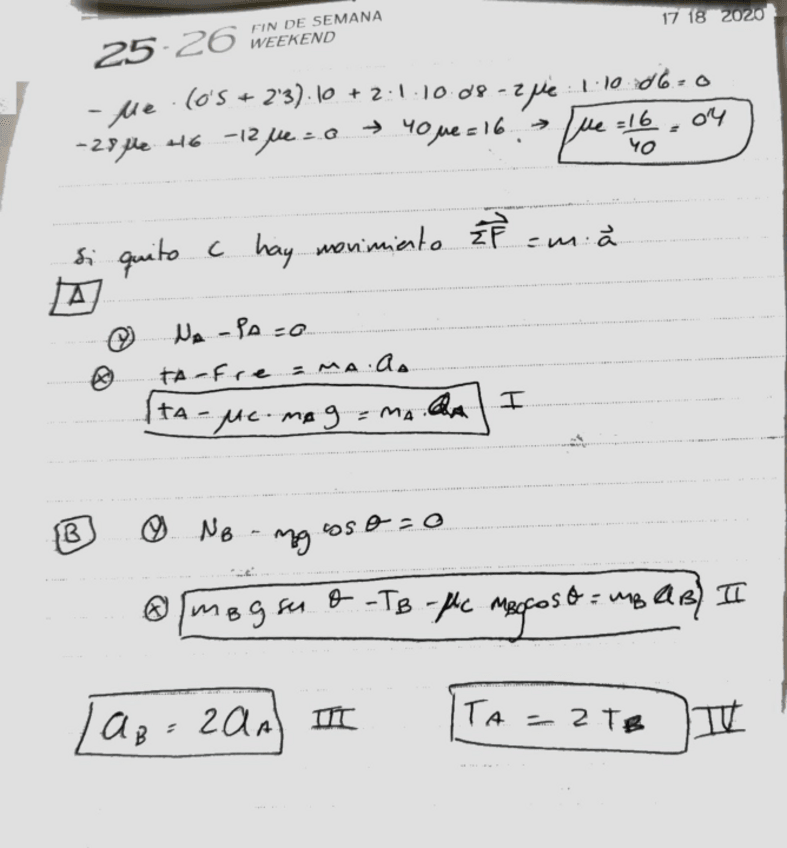 25-26 FIN DE SEMANA WEEKEND
17 18 2020
- μe · (0'5 + 2'3)·10 + 2·1·10·0'8 - 2μe · 1·10·0'6 = 0
-28μe +16 -12μe = 0 → 40μe = 16 → μe = 16/40 = 0'4
Si quito C hay movimiento ΣF⃗ = m·a⃗
A
Y NA - PA = 0
X tA - Fre = mA·aA
tA - μc·mA g = mA·aA I
B Y NB - mBg cos θ = 0
X mB g sen θ - TB - μc mBg cos θ = mB aB II
aB = 2aA III TA = 2TB IV